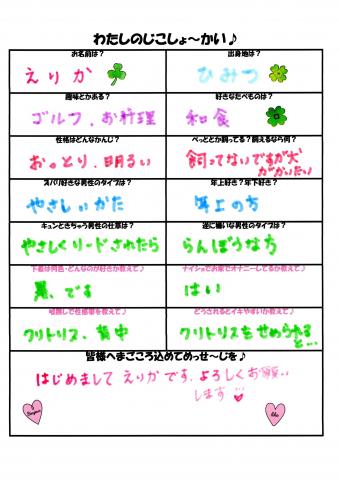 わたしのじこしょ～かい♪
お名前は？
出身地は？
えりか
ひみつ
趣味とかある？
好きなたべものは？
ゴルフ、お料理
和食
性格はどんなかんじ？
ぺっととか飼ってる？飼えるなら何？
おっとり、明るい
飼ってないですが犬
がかいたい
ズバリ好きな男性のタイプは？
年上好き？年下好き？
やさしいかた
年上の方
キュンときちゃう男性の仕草は？
逆に嫌いな男性のタイプは？
やさしくリードされたら
らんぼうな方
下着は何色・どんなのが好きか教えて♪
ナイショでお家でオナニーしてるか教えて♪
黒、です
はい
性感帯を教えて♪
どうされるとイキやすいか教えて♪
クリトリス、背中
クリトリスをせめられると
と...
皆様へまごころ込めてめっせ～じを♪
はじめまして えりかです。よろしくお願い
します